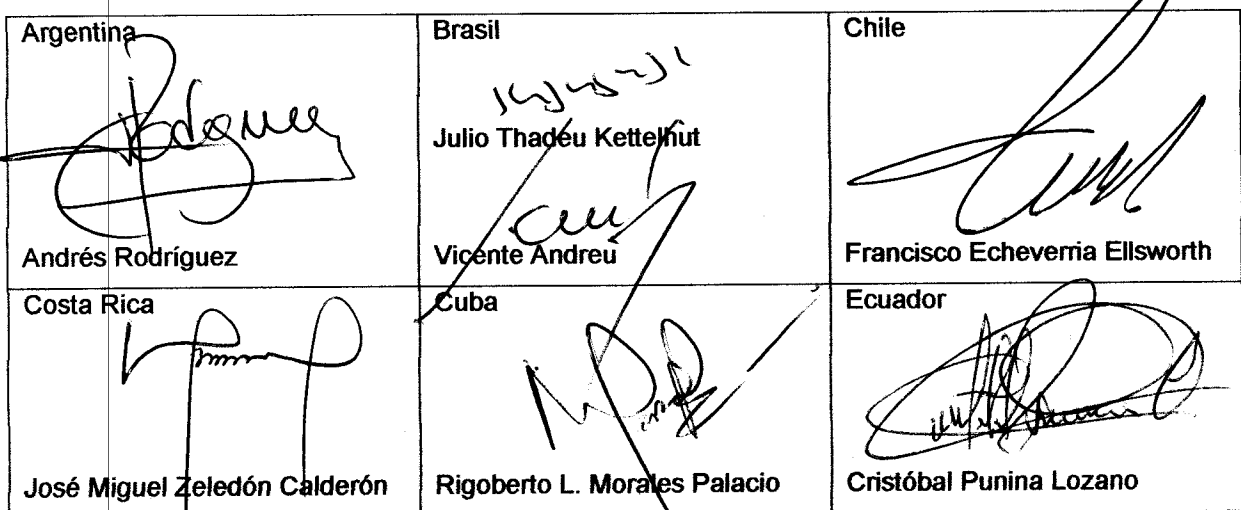 Argentina
Andrés Rodríguez
Brasil
Julio Thadeu Kettelhut
Vicente Andreu
Chile
Francisco Echeverria Ellsworth
Costa Rica
José Miguel Zeledón Calderón
Cuba
Rigoberto L. Morales Palacio
Ecuador
Cristóbal Punina Lozano